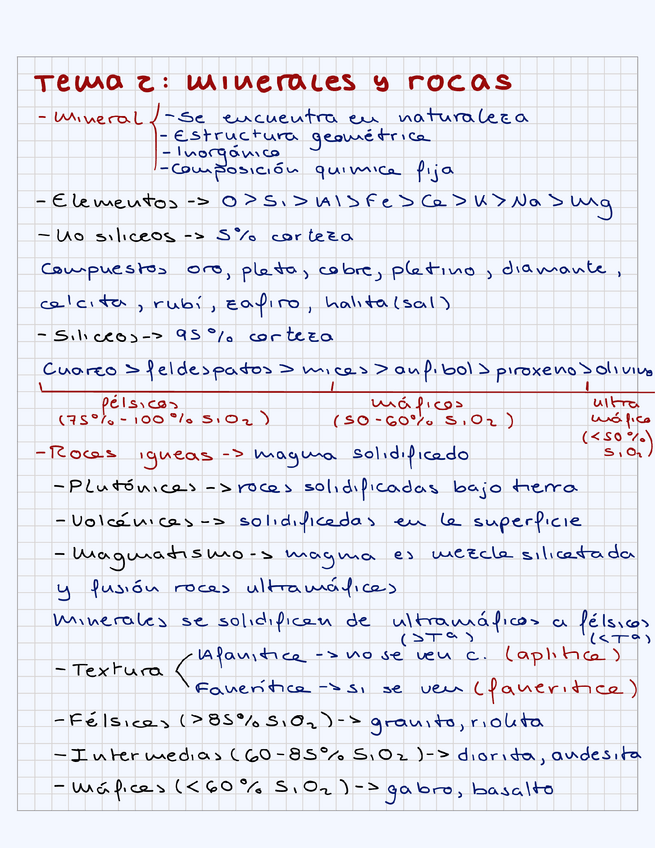 Tema 2: minerales y rocas
- Mineral - Se encuentra en naturaleza
- Estructura geométrica
- Inorgánico
- Composición quimica fija
- Elementos -> O > Si > Al > Fe > Ca > K > Na > Mg
- No siliceos -> 5% corteza
Compuestos oro, plata, cobre, platino, diamante,
calcita, rubí, zafiro, halita (sal)
- Siliceos -> 95% corteza
Cuarzo > feldespatos > micas > anfibol > piroxeno > olivino
félsicos máficos ultra
(75% - 100% SiO2) (50-60% SiO2) máfico
(<50%)
SiO2)
- Rocas igneas -> magma solidificado
- Plutónicas -> rocas solidificadas bajo tierra
- Volcánicas -> solidificadas en la superficie
- Magmatismo -> magma es mezcla silicatada
y fusión rocas ultramáficas
Minerales se solidifican de ultramáficos a félsicos
(>Tª) (<Tª)
- Textura
Afanitica -> no se ven c. (aplitica)
Fanerítica -> si se ven (faneritica)
- Félsicas (>85% SiO2) -> granito, riolita
- Intermedias (60-85% SiO2) -> diorita, andesita
- Máficas (<60% SiO2) -> gabro, basalto